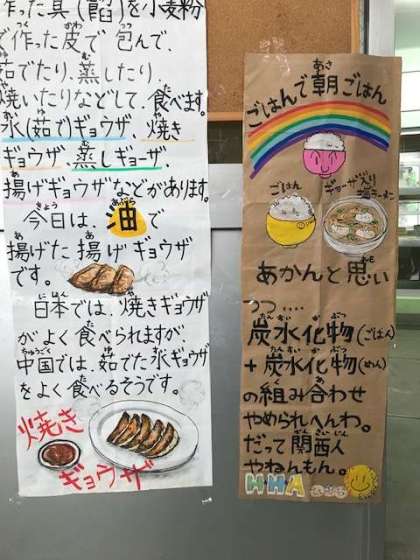 作った具(餡)を小麦粉
で作った皮で包んで、
茹でたり、蒸したり、
焼いたりなどして、食べます。
水(茹で)ギョウザ、焼き
ギョウザ、蒸しギョーザ、
揚げギョウザなどがあります。
今日は、油で
揚げた揚げギョウザ
です。
日本では、焼きギョウザ
がよく食べられますが、
中国では、茹でた水ギョウザ
をよく食べるそうです。
焼き
ギョウザ
ごはんで朝ごはん
ごはん
ギョーザ入り
塩ラーメン
あかんと思い
つつ....
炭水化物(ごはん)
+炭水化物(めん)
の組み合わせ
やめられへんわ。
だって関西人
やねんもん。